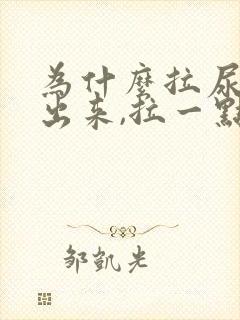 為什麼拉尿
出来,拉一點
邹凱光